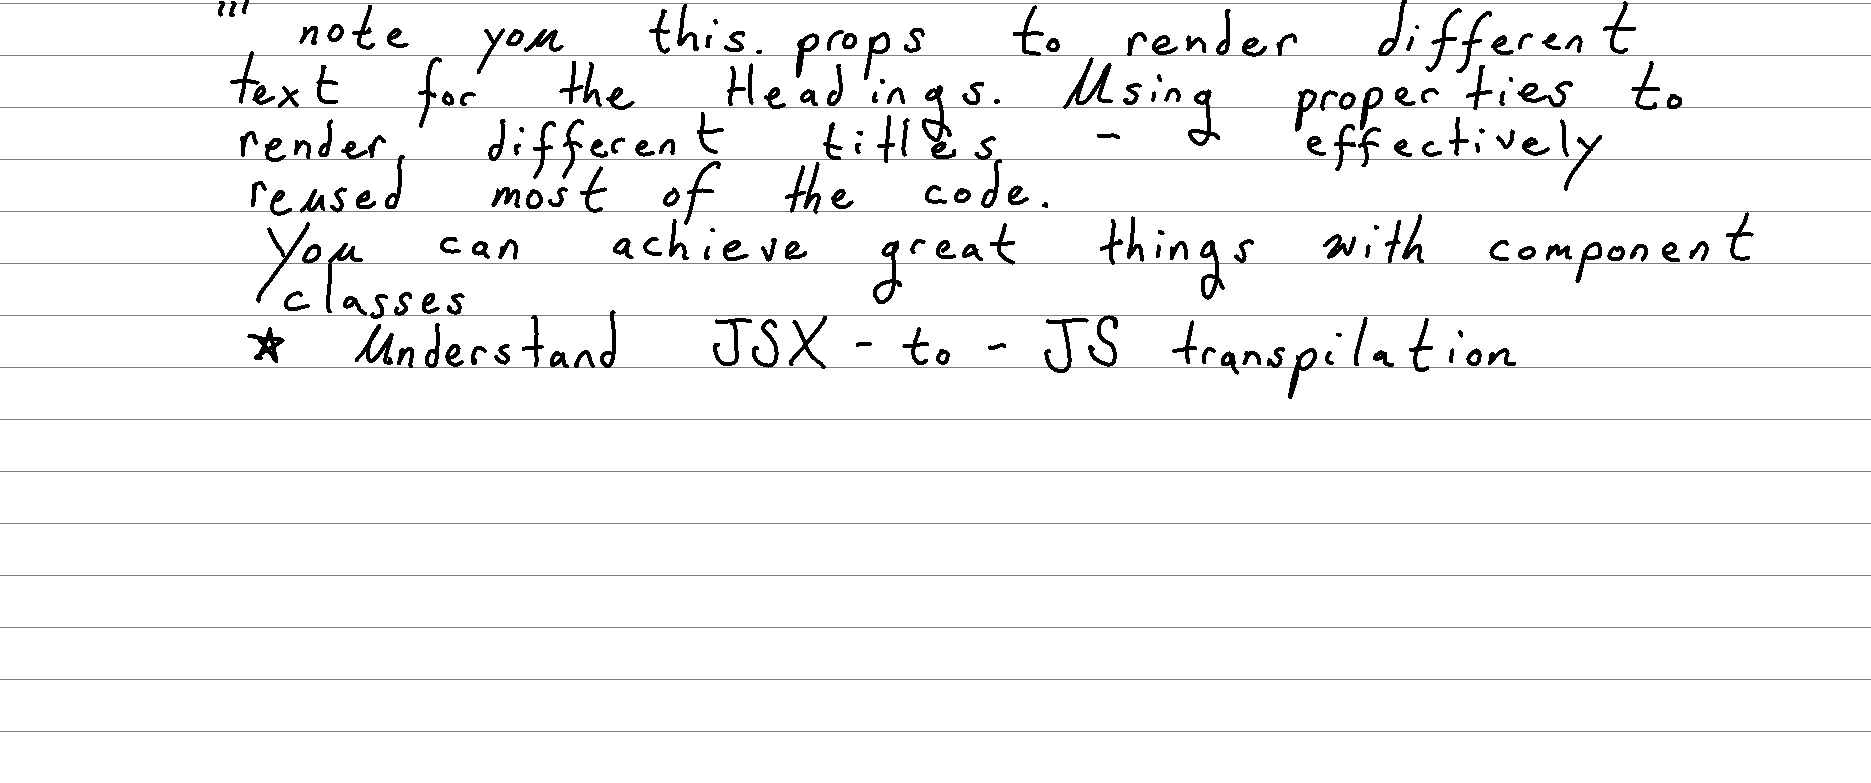 ''' note you this. props to render different
text for the Headings. Using properties to
render, different titles, - effectively
reused most of the code.
You can achieve great things with component
classes
★ Understand JSX - to - JS transpilation